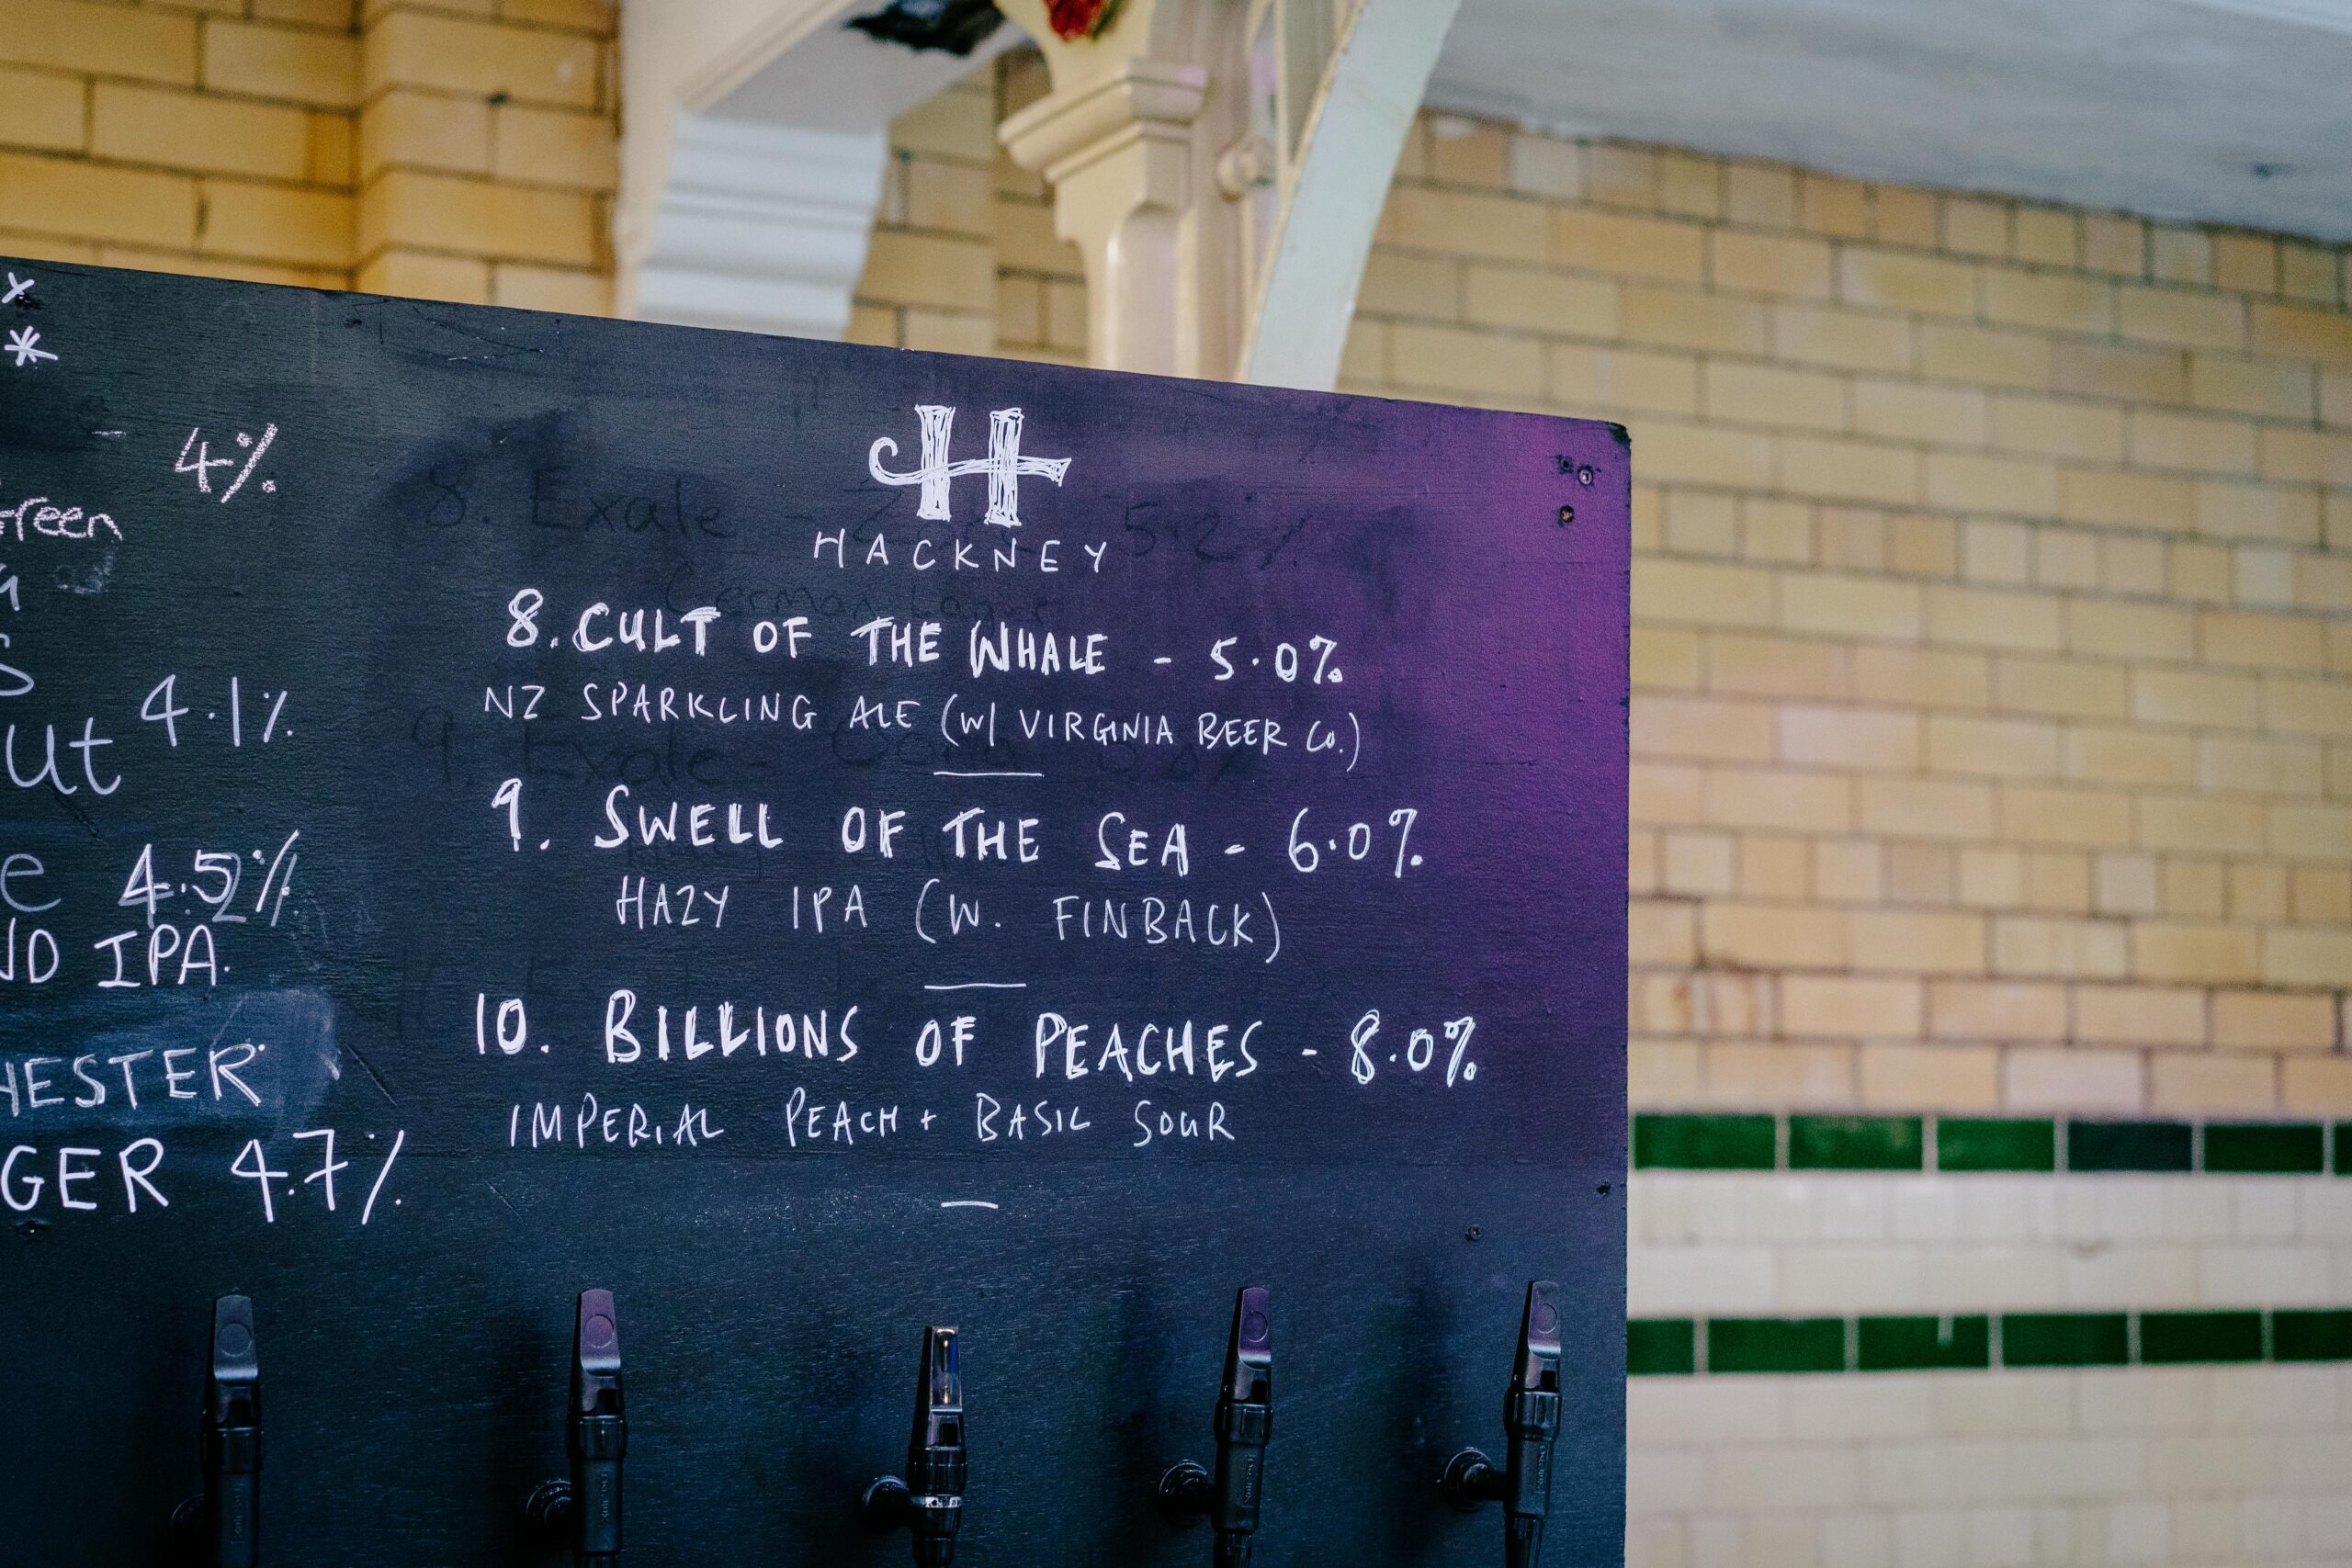 4%
4.1%
4.5%
IPA.
4.7%
H
HACKNEY
8. CULT OF THE WHALE - 5.0%
NZ SPARKLING ALE (W/ VIRGINIA BEER CO.)
9. SWELL OF THE SEA - 6.0%
HAZY IPA (W. FINBACK)
10. BILLIONS OF PEACHES - 8.0%
IMPERIAL PEACH + BASIL SOUR
8. Exale 5.2%
German Lager
9. Exale -